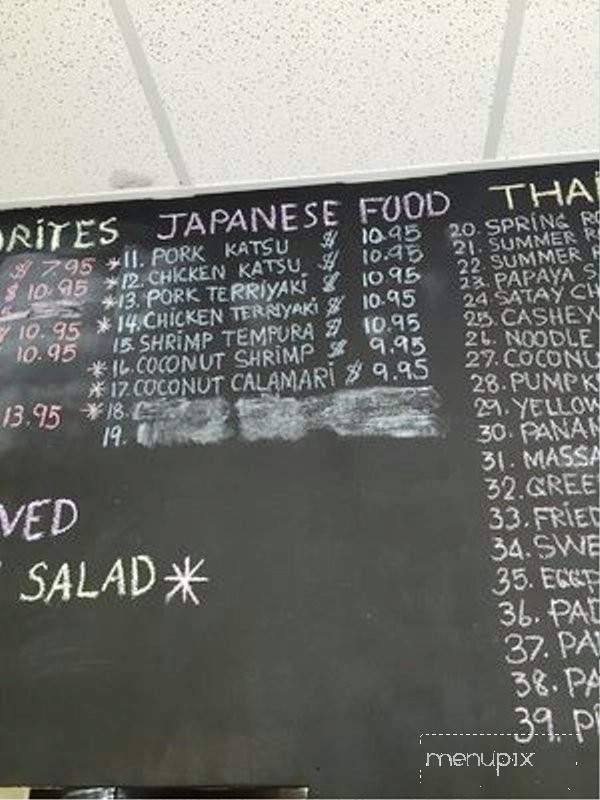 ORITES
$ 7.95
$ 10.95
10.95
10.95
13.95
VED
SALAD*
JAPANESE FOOD
*11. PORK KATSU $ 10.95
*12. CHICKEN KATSU $ 10.95
*13. PORK TERRIYAKI $ 10.95
*14. CHICKEN TERRIYAKI $ 10.95
15. SHRIMP TEMPURA $ 10.95
*16. COCONUT SHRIMP $ 9.95
*17. COCONUT CALAMARI $ 9.95
*18.
19.
THAI
20. SPRING RO
21. SUMMER R
22. SUMMER
23. PAPAYA S
24. SATAY CH
25. CASHEW
26. NOODLE
27. COCONU
28. PUMPK
29. YELLOW
30. PANAN
31. MASSA
32. GREE
33. FRIED
34. SWE
35. EGGP
36. PAD
37. PA
38. PA
39. P
menupix